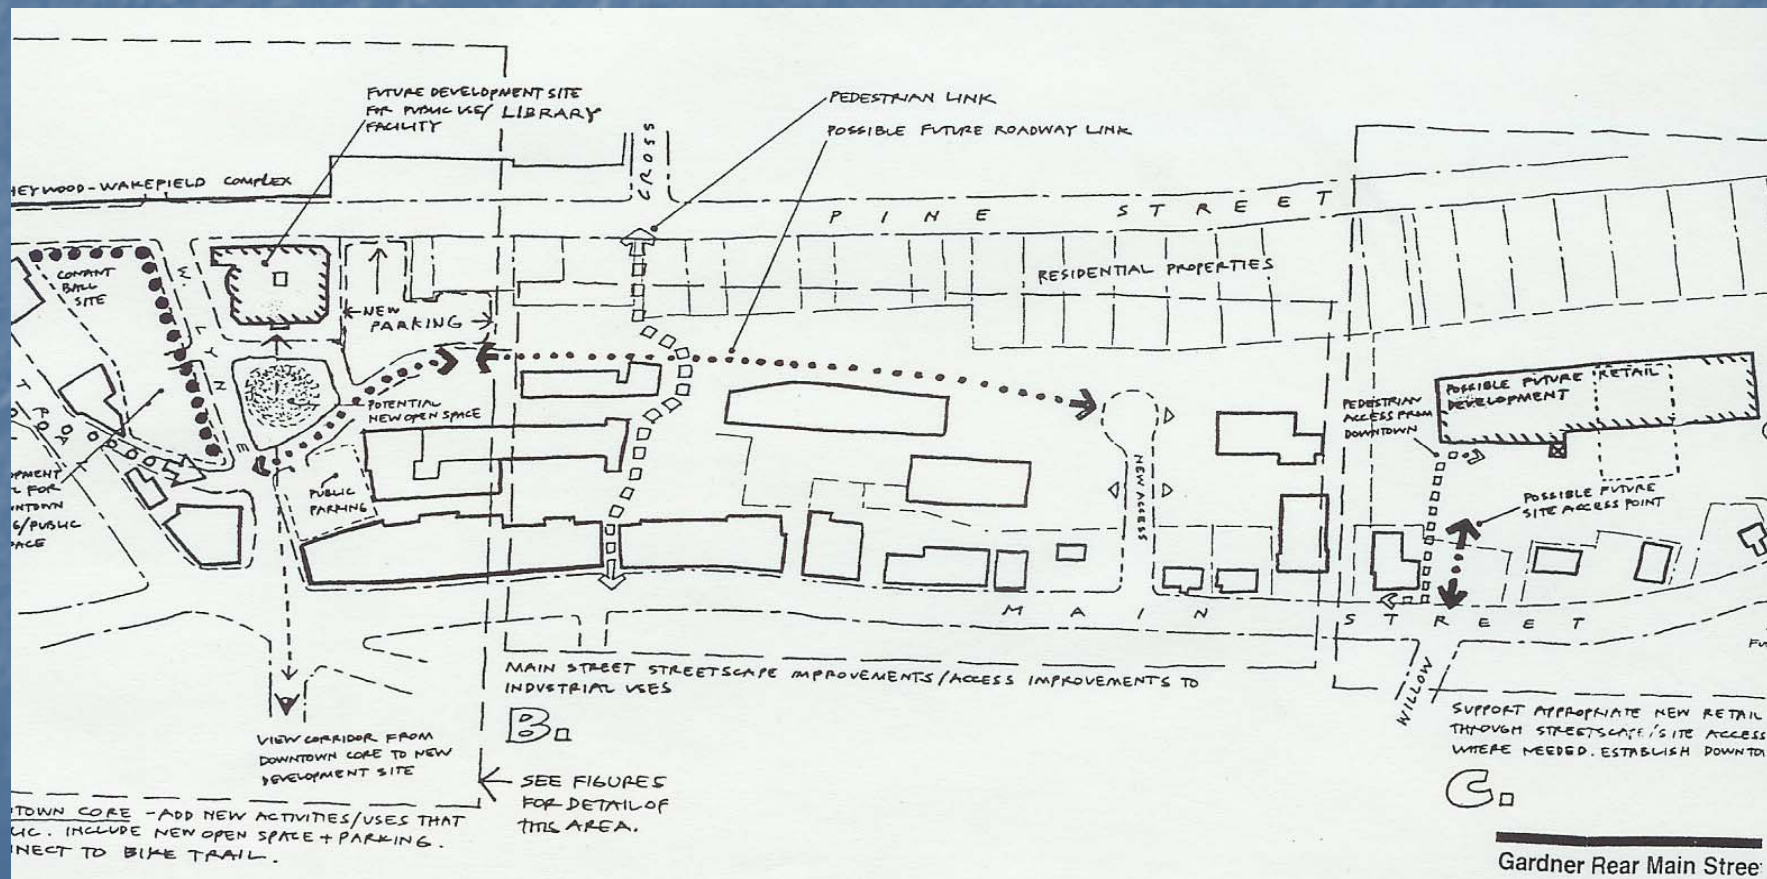 FUTURE DEVELOPMENT SITE
FOR PUBLIC USE/ LIBRARY
FACILITY
PEDESTRIAN LINK
POSSIBLE FUTURE ROADWAY LINK
CROSS
HEYWOOD-WAKEFIELD COMPLEX
PINE STREET
CONANT
BALL
SITE
WILLOW
NEW
PARKING
RESIDENTIAL PROPERTIES
POTENTIAL
NEW OPEN SPACE
PUBLIC
PARKING
NEW ACCESS
PEDESTRIAN
ACCESS FROM
DOWNTOWN
POSSIBLE FUTURE RETAIL
DEVELOPMENT
POSSIBLE FUTURE
SITE ACCESS POINT
MAIN STREET
MAIN STREET STREETSCAPE IMPROVEMENTS/ACCESS IMPROVEMENTS TO
INDUSTRIAL USES
B.
VIEW CORRIDOR FROM
DOWNTOWN CORE TO NEW
DEVELOPMENT SITE
SEE FIGURES
FOR DETAIL OF
THIS AREA.
TOWN CORE - ADD NEW ACTIVITIES/USES THAT
LIC. INCLUDE NEW OPEN SPACE + PARKING.
NNECT TO BIKE TRAIL.
SUPPORT APPROPRIATE NEW RETAIL
THROUGH STREETSCAPE/SITE ACCESS
WHERE NEEDED. ESTABLISH DOWNTO
C.
Gardner Rear Main Stree